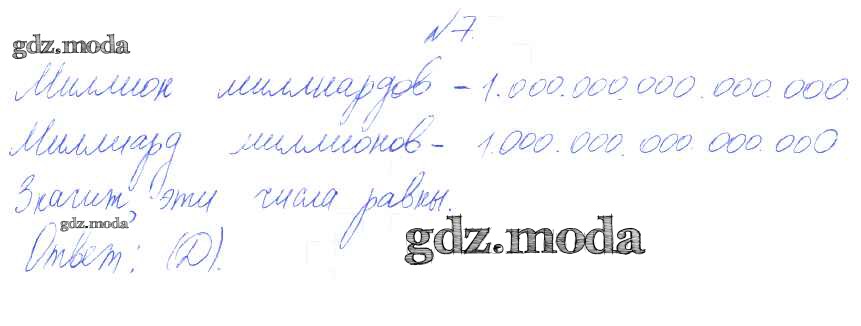 №7.
gdz.moda
Миллион миллиардов – 1.000.000.000.000.000.
Миллиард миллионов – 1.000.000.000.000.000
Значит, эти числа равны.
gdz.moda
gdz.moda
Ответ: (D).